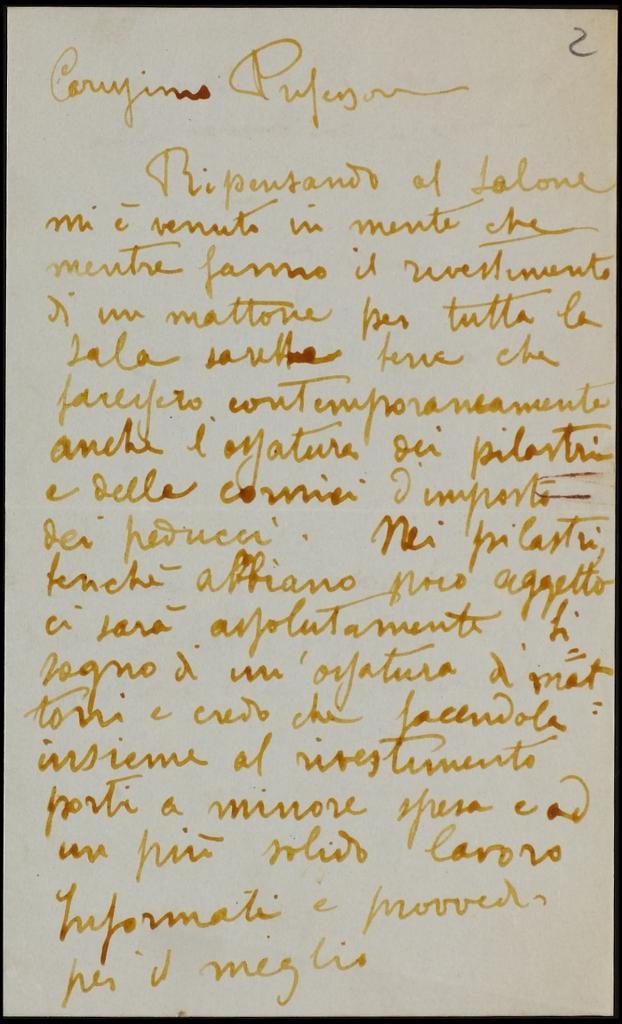 2
Carissimo Professore
Ripensando al Salone
mi è venuto in mente che
mentre fanno il rivestimento
di un mattone per tutta la
sala sarebbe bene che
facessero contemporaneamente
anche l'ossatura dei pilastri
e delle cornici d'imposta
dei peducci. Nei pilastri,
benchè abbiano poco aggetto
ci sarà assolutamente bi=
sogno di un'ossatura di mat=
toni e credo che facendola
insieme al rivestimento
porti a minore spesa e ad
un più solido lavoro
Informati e provvedi
per il meglio